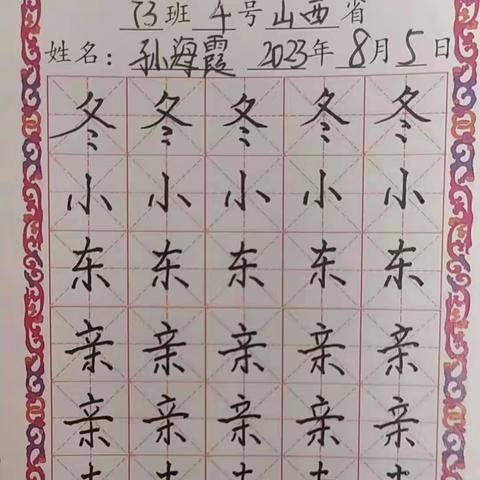 73班 4号 山西 省
姓名: 孙海霞 2023年 8月 5日
冬 冬 冬 冬 冬
小 小 小 小 小
东 东 东 东 东
亲 亲 亲 亲 亲
亲 亲 亲 亲 亲